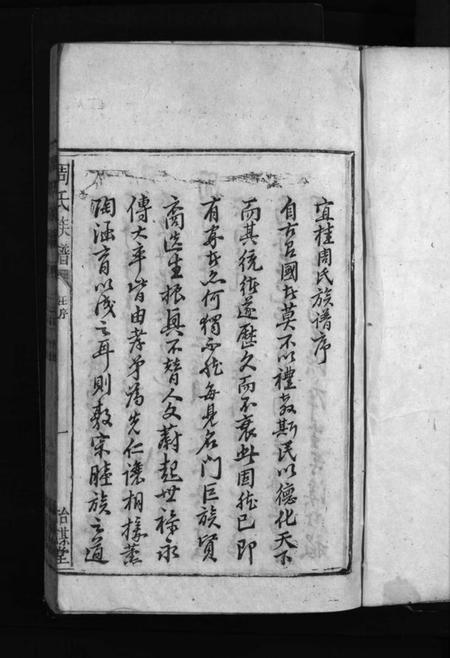 宜桂周氏族譜序
自古名國者莫不以禮教斯民以德化天下
而其統維遂歷久而不衰此固然已即
有家者亦何獨不然每見名門巨族賢
裔迭生振興不替人文蔚起世祿永
傳大率皆由孝弟為先仁讓相接薰
陶涵育以成之耳則敦宗睦族之道
周氏族譜
序
一
怡謀堂